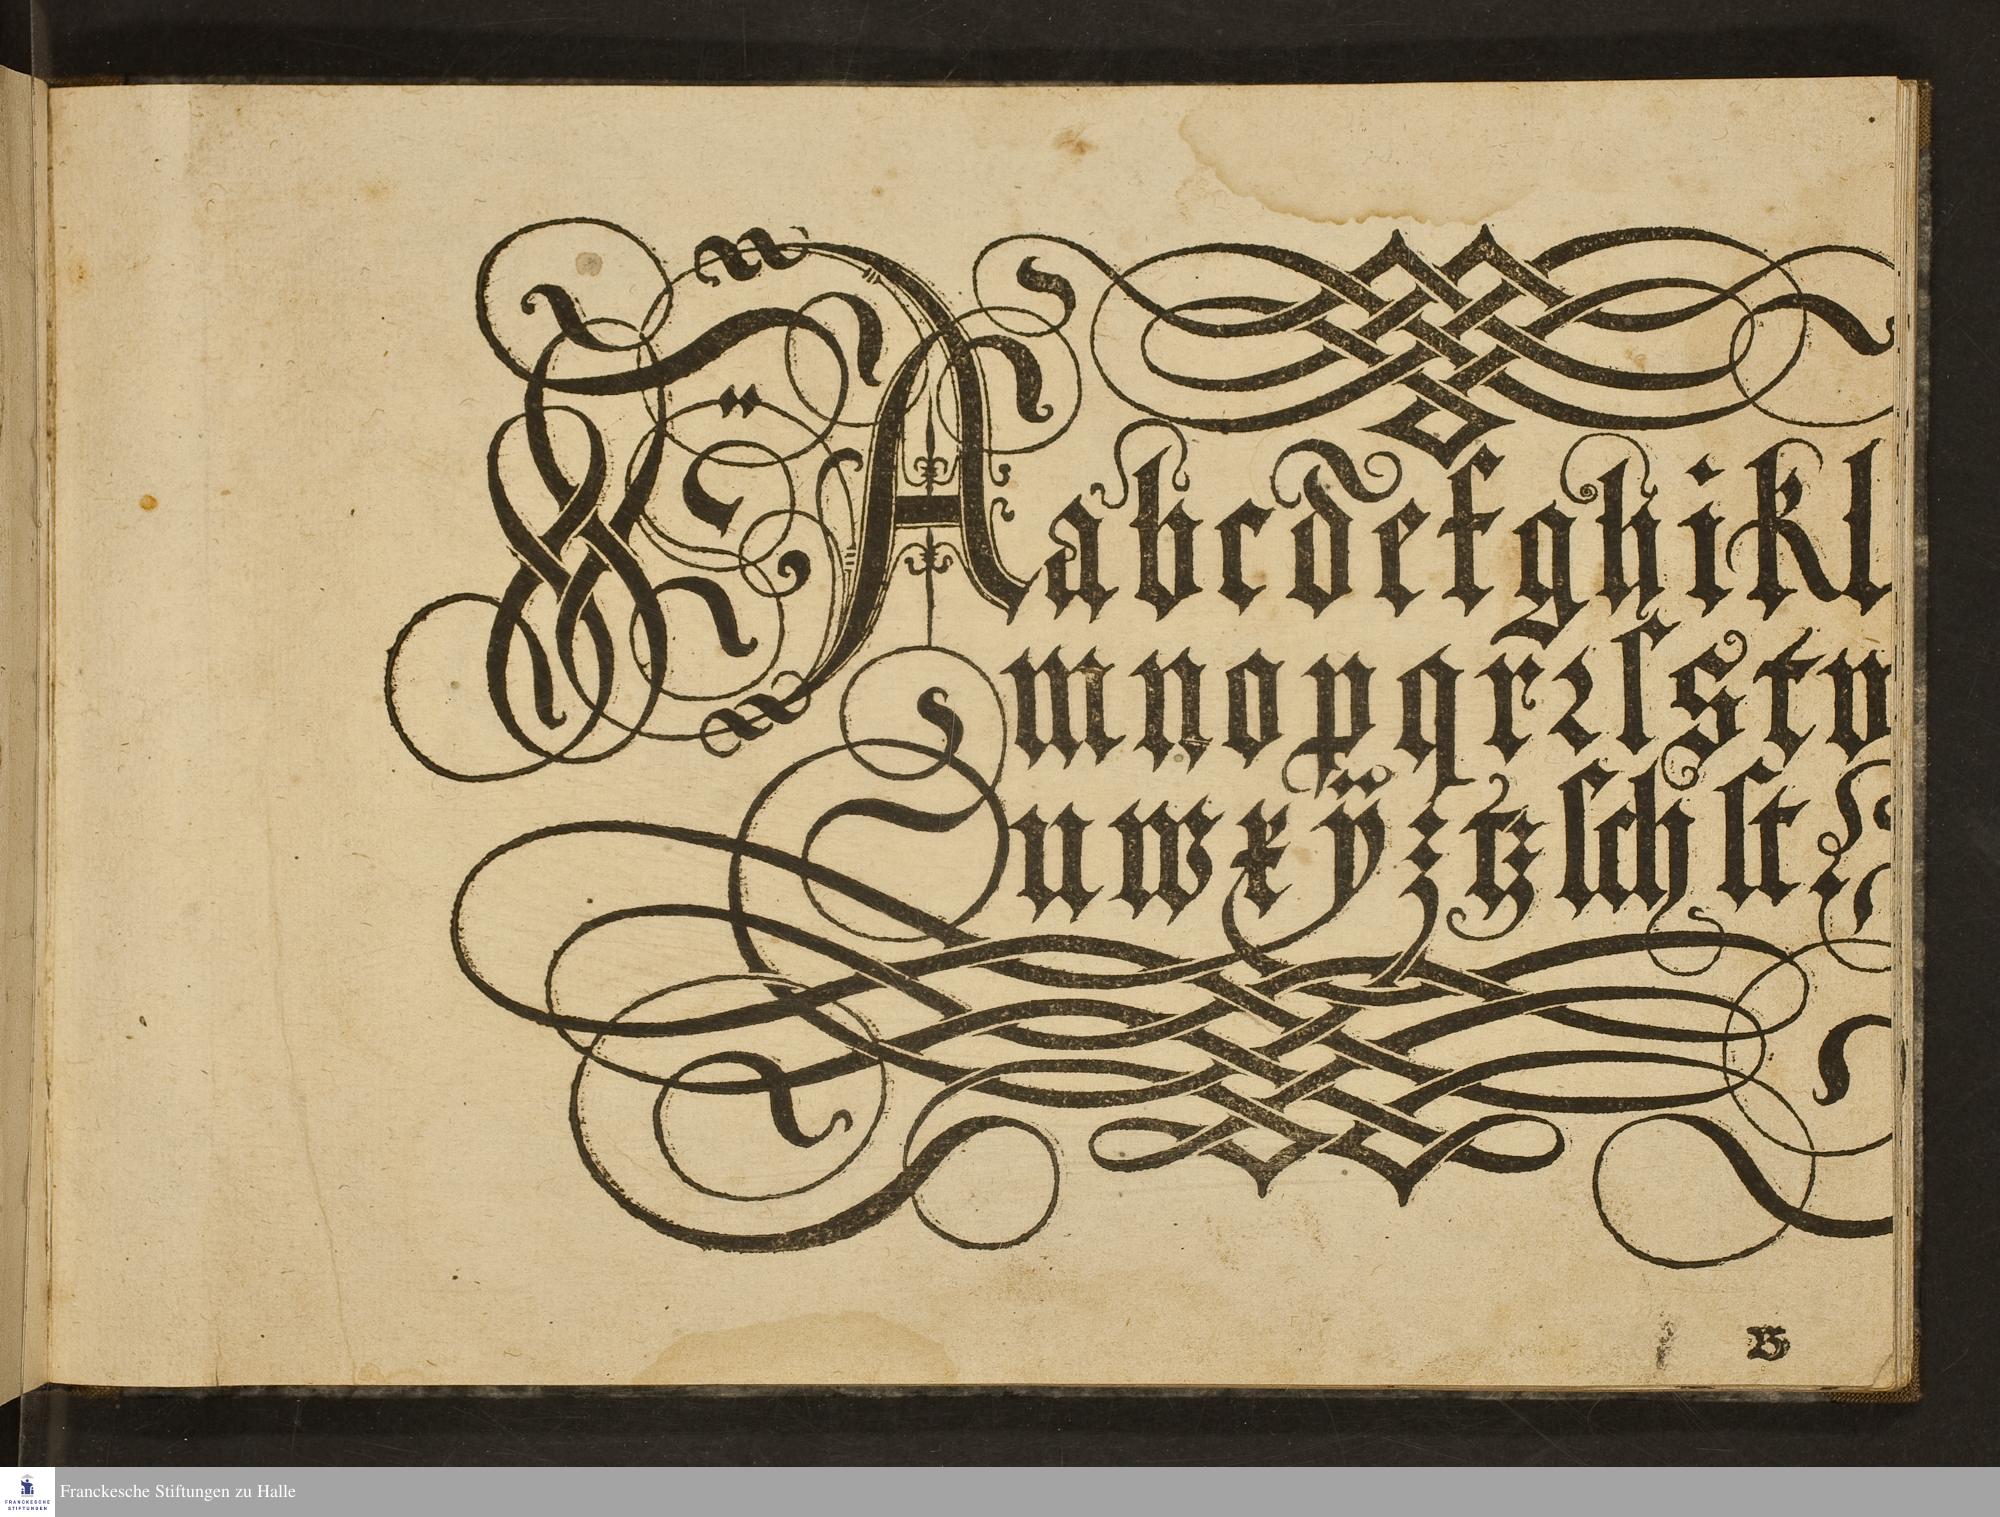 A a b c d e f g h i k l
m n o p q r ꝛ ſ s t v
u w x ÿ z tz ſch ſt
B
FRANCKESCHE
STIFTUNGEN
Franckesche Stiftungen zu Halle